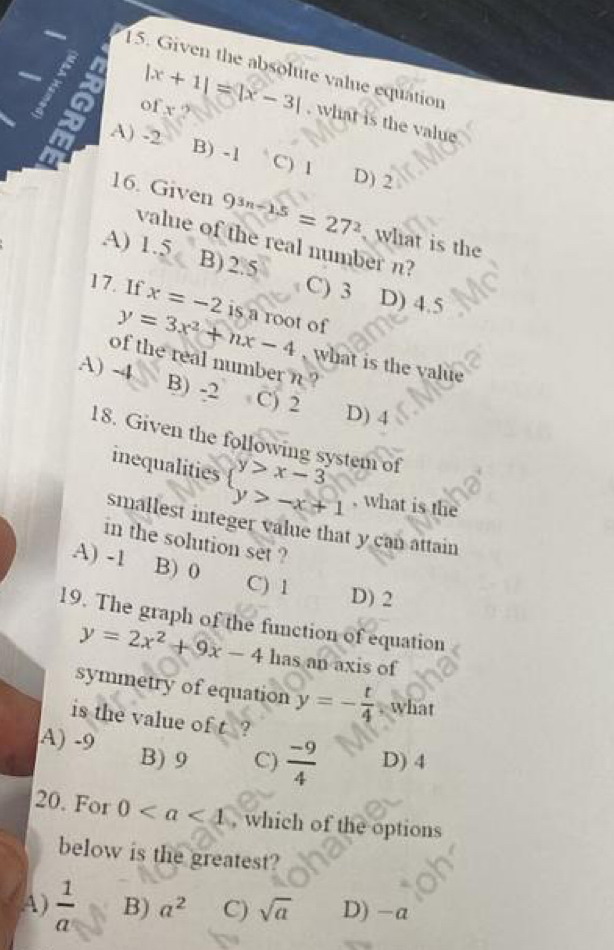 (M&A Hamad)
ERGREE
15. Given the absolute value equation
|x + 1| = |x − 3| , what is the value
of x ?
A) -2 B) -1 C) 1 D) 2
16. Given 9³ⁿ⁻¹·⁵ = 27², what is the
value of the real number n?
A) 1.5 B) 2.5 C) 3 D) 4.5
17. If x = −2 is a root of
y = 3x² + nx − 4 , what is the value
of the real number n ?
A) -4 B) -2 C) 2 D) 4
18. Given the following system of
inequalities { y > x − 3
y > −x + 1 , what is the
smallest integer value that y can attain
in the solution set ?
A) -1 B) 0 C) 1 D) 2
19. The graph of the function of equation
y = 2x² + 9x − 4 has an axis of
symmetry of equation y = −t/4 , what
is the value of t ?
A) -9 B) 9 C) −9/4 D) 4
20. For 0 < a < 1, which of the options
below is the greatest?
A) 1/a B) a² C) √a D) −a